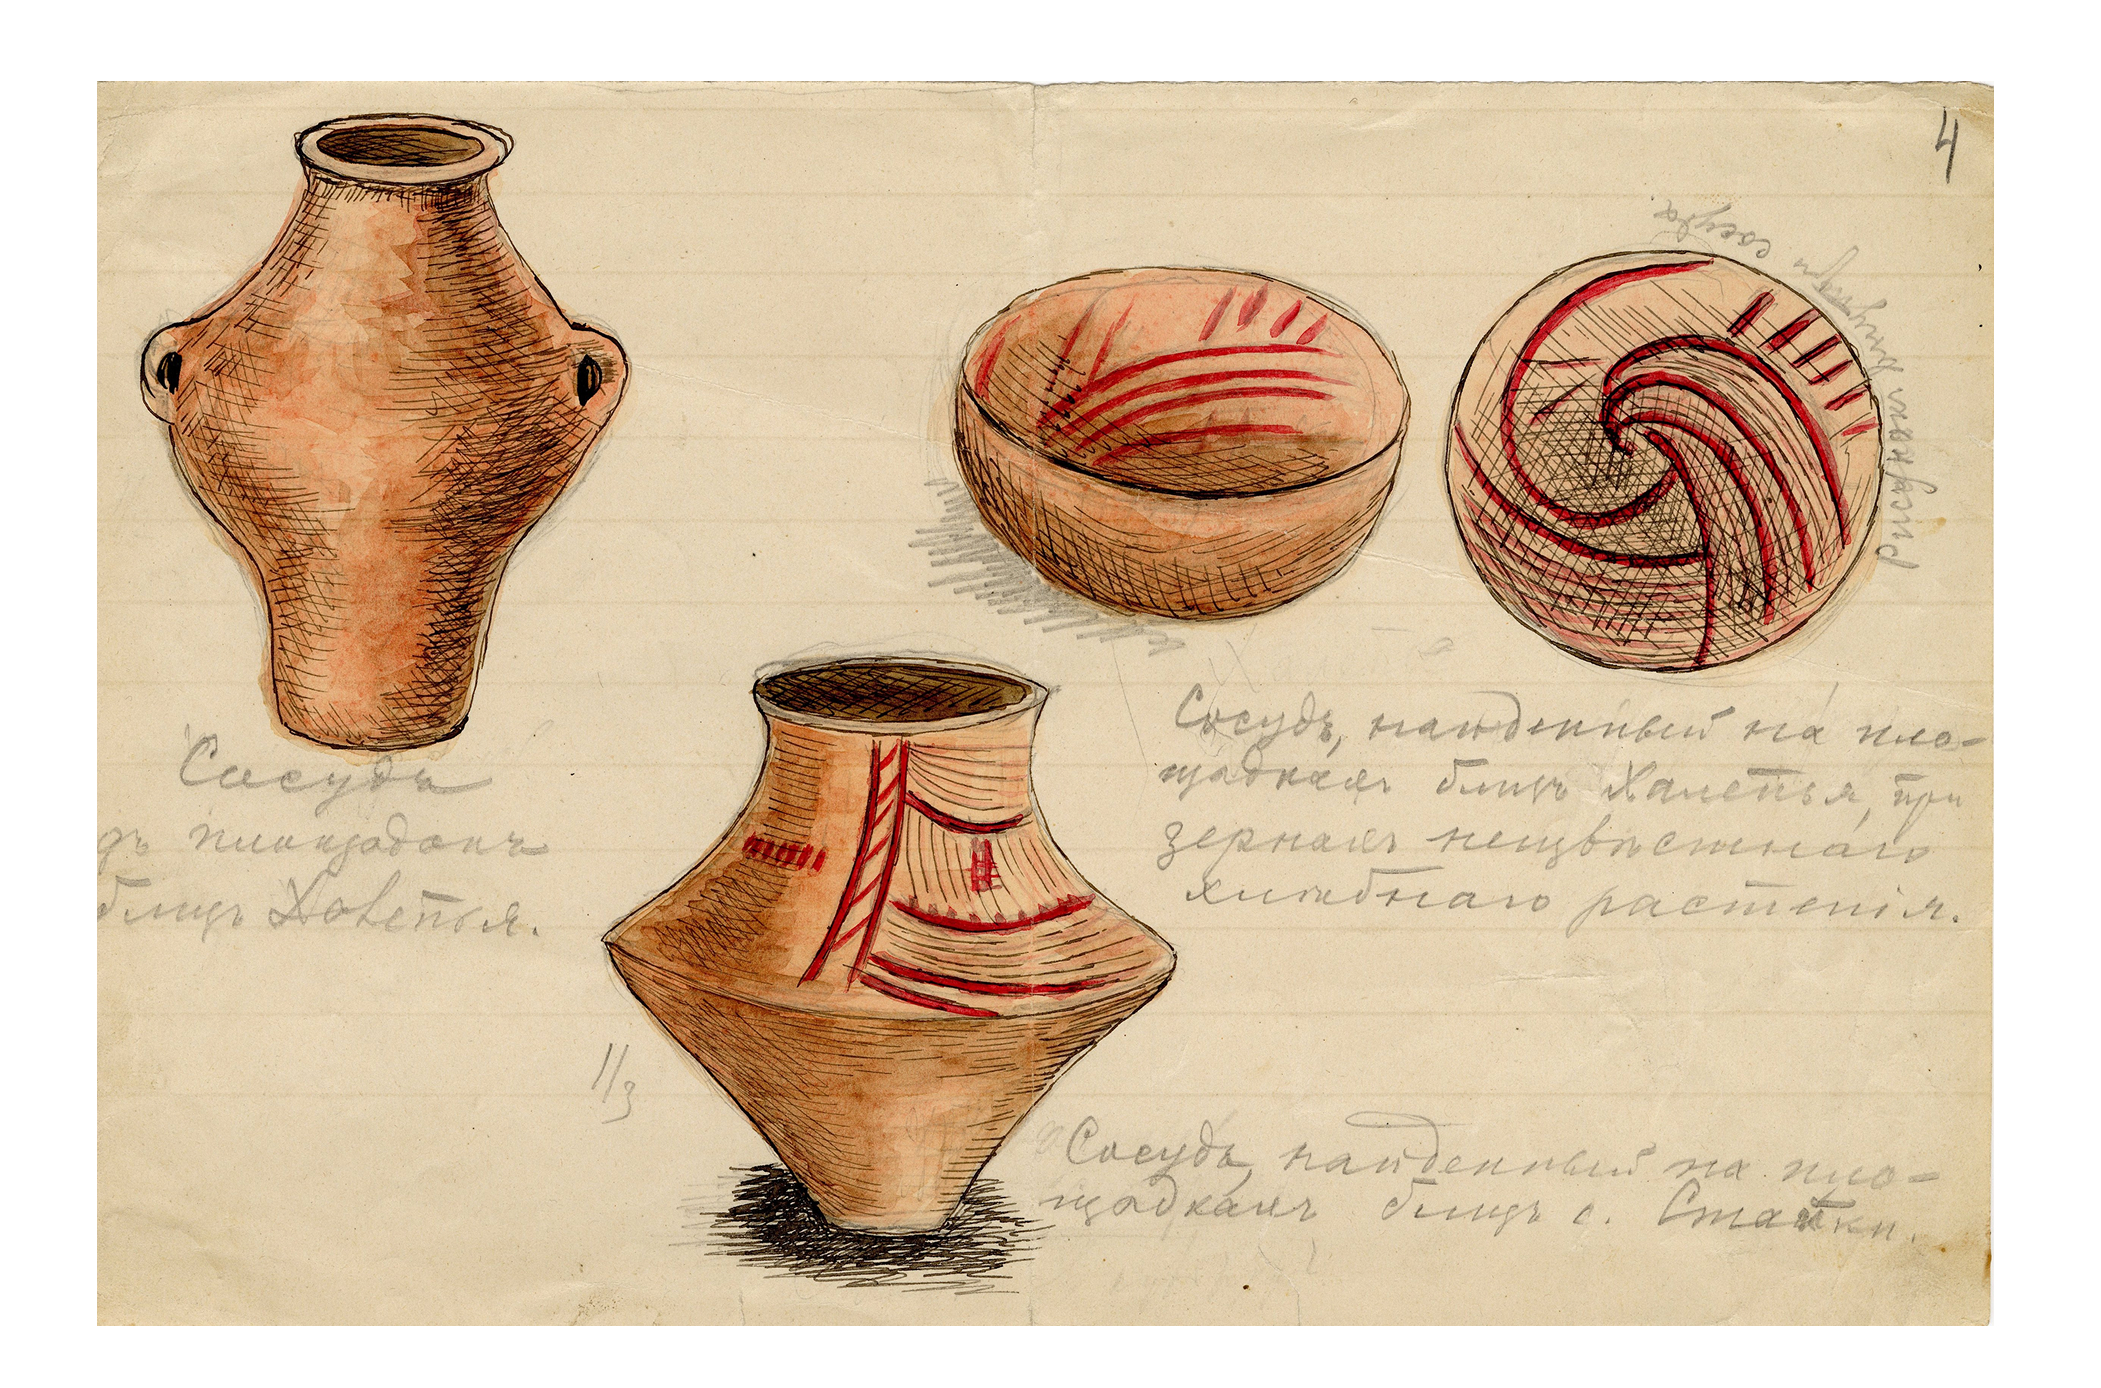 4
Рисунокъ внутри сосуда
Сосудъ
съ площадокъ
близъ Халепья.
Сосудъ, найденный на пло-
щадкахъ близъ Халепья, при
зернахъ неизвѣстнаго
хлѣбнаго растенія.
1/3
Сосудъ, найденный на пло-
щадкахъ близъ с. Стайки.